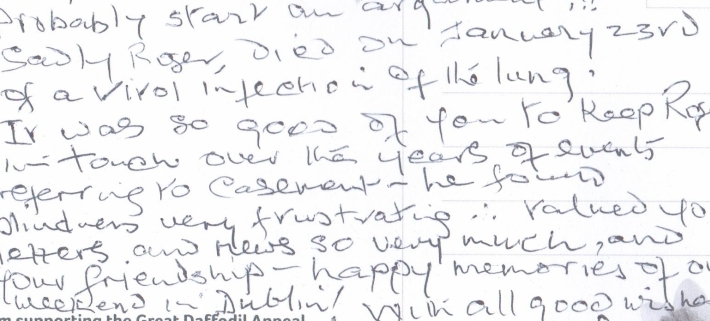 Probably start an argument !!!
Sadly Roger, Died on January 23rd
of a Virol infection of the lung.
It was so good of you to keep Rog
in-touch over the years of events
referring to Casement - he found
blindness very frustrating ∴ valued yo
letters and news so very much, and
your friendship - happy memories of ou
weekend in Dublin! With all good wishe
m supporting the Great Daffodil Appeal